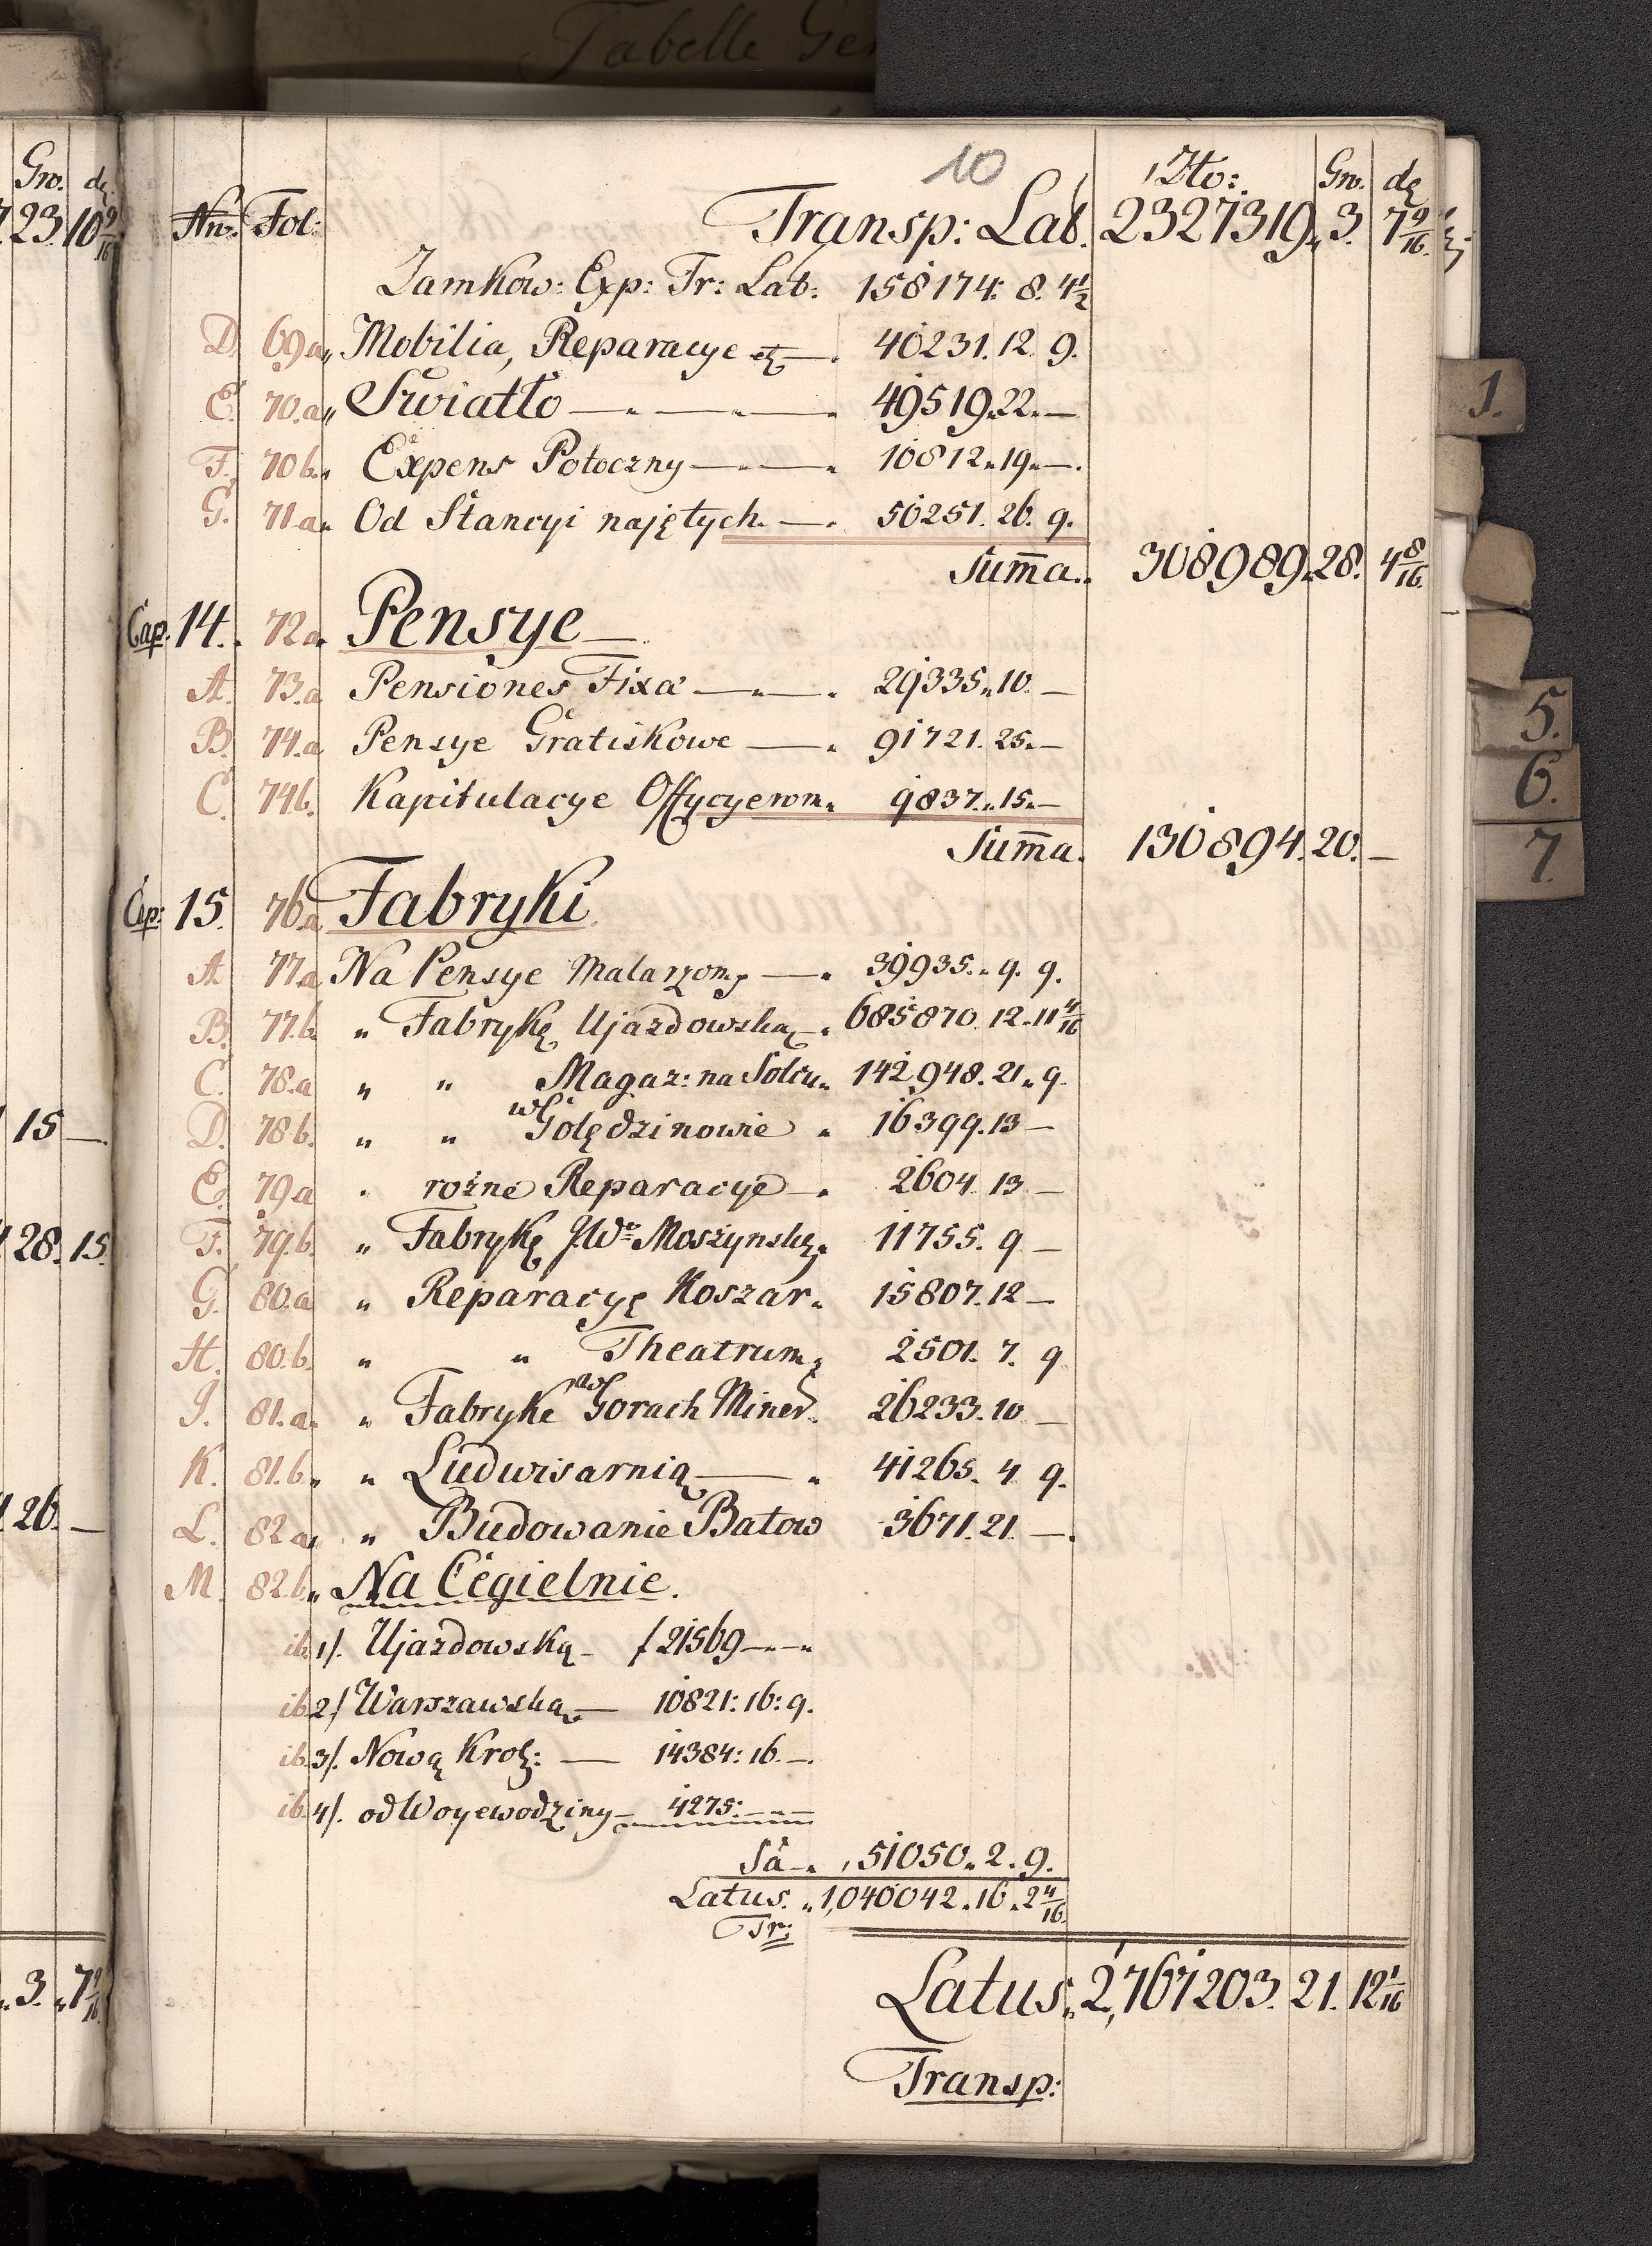 Tabelle Gen
10
Gro. dę.
23. 10 9/16
15 —
28. 15.
26. —
3. 7 9/16
Złto: Gro. dę
Nro. Fol: Transp: Lat. 2327319. 3. 7 9/16.
Zamkow: Exp: Tr: Lat: 158174. 8. 4 1/2
D. 69a „ Mobilia, Reparacye etz —. 40231. 12. 9.
E. 70.a „ Swiatło — „ — „ — „ 49519. 22. —
F. 70b. „ Expens Potoczny — „ — „ 10812. 19. —.
G. 71.a. Od Stancyi najętych. —. 50251. 26. 9.
Sum̄a.. 308989. 28. 4 8/16
Cap. 14. 72a. Pensye —
A. 73.a Pensiones Fixa — „ —. 29335. 10. —
B. 74.a Pensye Gratiskowe —. 91721. 25. —
C. 74b. Kapitulacye Offycyerom. 9837. 15. —
Sum̄a. 130894. 20. —
Cap: 15. 76.a Fabryki.
A. 77.a Na Pensye Malarzom, —. 39935. 9. 9.
B. 77.b. „ Fabrykę Ujazdowską —. 685870. 12. 11 4/16
C. 78.a „ „ Magaz: na Solcu. 142,948. 21. 9.
D. 78b. „ „ w Golędzinowie. 16399. 13 —
E. 79a „ rożne Reparacye —. 2604. 13. —
F. 79.b. „ Fabrykę JWo Moszynskę. 11755. 9 —
G. 80.a „ Reparacyę Koszar. 15807. 12 —
H. 80.b. „ „ Theatrum. 2501. 7. 9
J. 81.a. „ Fabrykę w Gorach Miner. 26233. 10 —
K. 81.b. „ „ Ludwisarnią — „ 41265. 4. 9.
L. 82a. „ Budowanie Batow 3671. 21. —.
M. 82.b. „ Na Cegielnie.
ib. 1/. Ujazdowską — f 21569 — „ — „
ib. 2/. Warszawską — 10821: 16: 9.
ib. 3/. Nową Krol: — 14384: 16 —.
ib. 4/. od Woyewodziny — 4275: — „ —
Sa —. 51050. 2. 9.
Latus. „ 1,040042. 16. 2 4/16
Tr:
Latus. 2,767203. 21. 12 1/16
Transp:
1.
5.
6.
7.